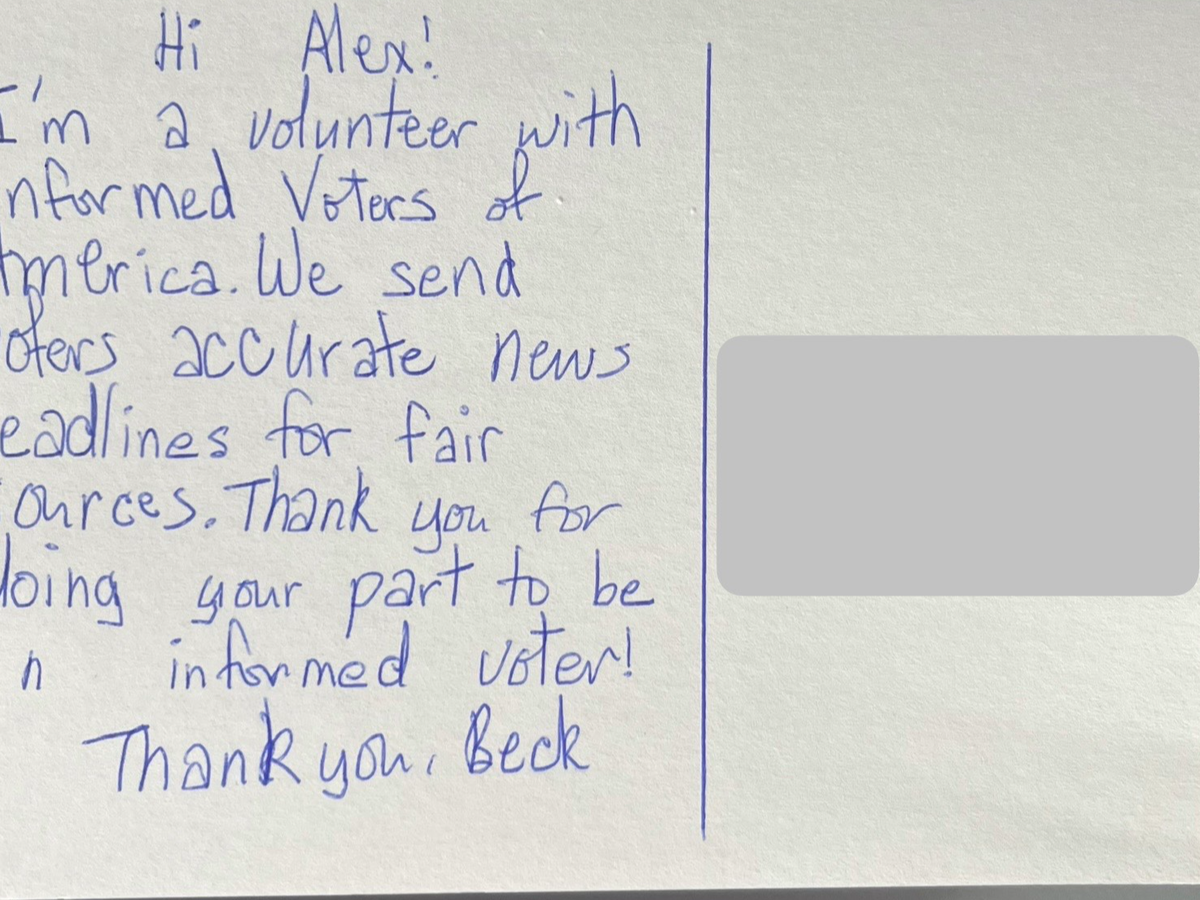 Hi Alex!
I'm a volunteer with
nformed Voters of
America. We send
oters accurate news
eadlines for fair
ources. Thank you for
doing your part to be
n informed voter!
Thank you, Beck